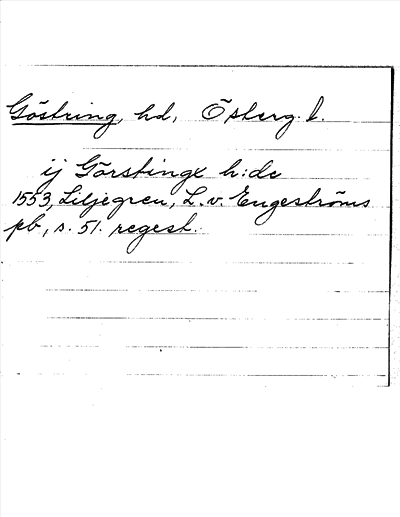 Göstring, hd, Österg. l.
ij Görstinge h:de
1553, Liljegren, L. v. Engeströms
pb, s. 51. regest.